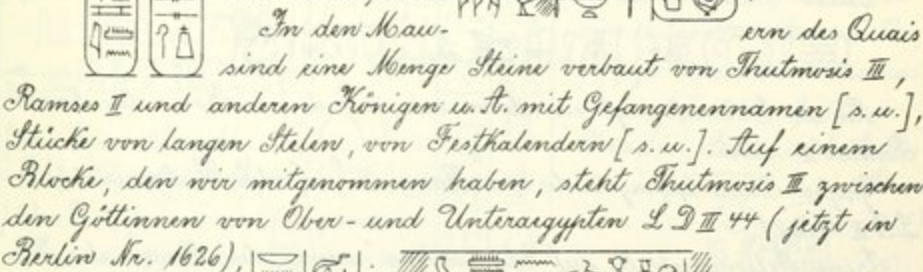 In den Mau- ern des Quais
sind eine Menge Steine verbaut von Thutmosis III,
Ramses II und anderen Königen u. A. mit Gefangenennamen [s. u.],
Stücke von langen Stelen, von Festkalendern [s. u.]. Auf einem
Blocke, den wir mitgenommen haben, steht Thutmosis III zwischen
den Göttinnen von Ober- und Unteraegypten L D III 44 (jetzt in
Berlin Nr. 1626),